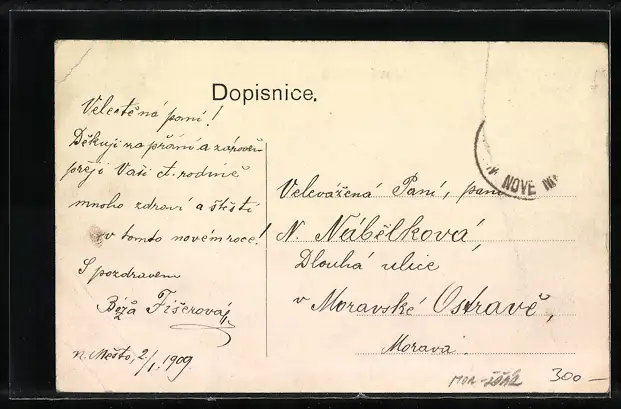 Dopisnice.
Velectěná paní!
Děkuji za přání a zároveň
přeji Vaší ct. rodině
mnoho zdraví a štěstí
v tomto novém roce!
S pozdravem
Fišerová
n. Město, 2/1. 1909
NOVÉ M
Velevážená Paní, paní
N. Nábělková,
Dlouhá ulice
v Moravské Ostravě,
Morava.
300 —